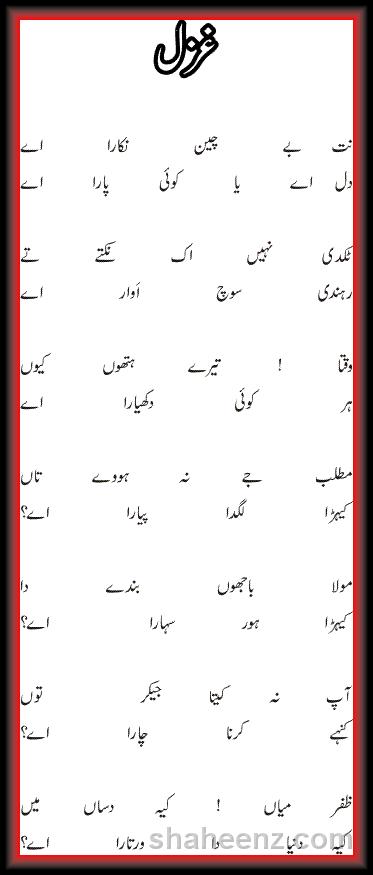 غزل
نت بے چین نکارا اے
دل اے یا کوئی پارا اے
ٹکدی نہیں اک نکتے تے
رہندی سوچ اَوار اے
وقتا ! تیرے ہتھوں کیوں
ہر کوئی دکھیارا اے
مطلب جے نہ ہووے تاں
کیہڑا لگدا پیارا اے؟
مولا باجھوں بندے دا
کیہڑا ہور سہارا اے؟
آپ نہ کیتا جیکر توں
کنہے کرنا چارا اے؟
ظفر میاں ! کیہ دساں میں
کیہ دنیا دا ورتارا اے؟
shaheenz.com